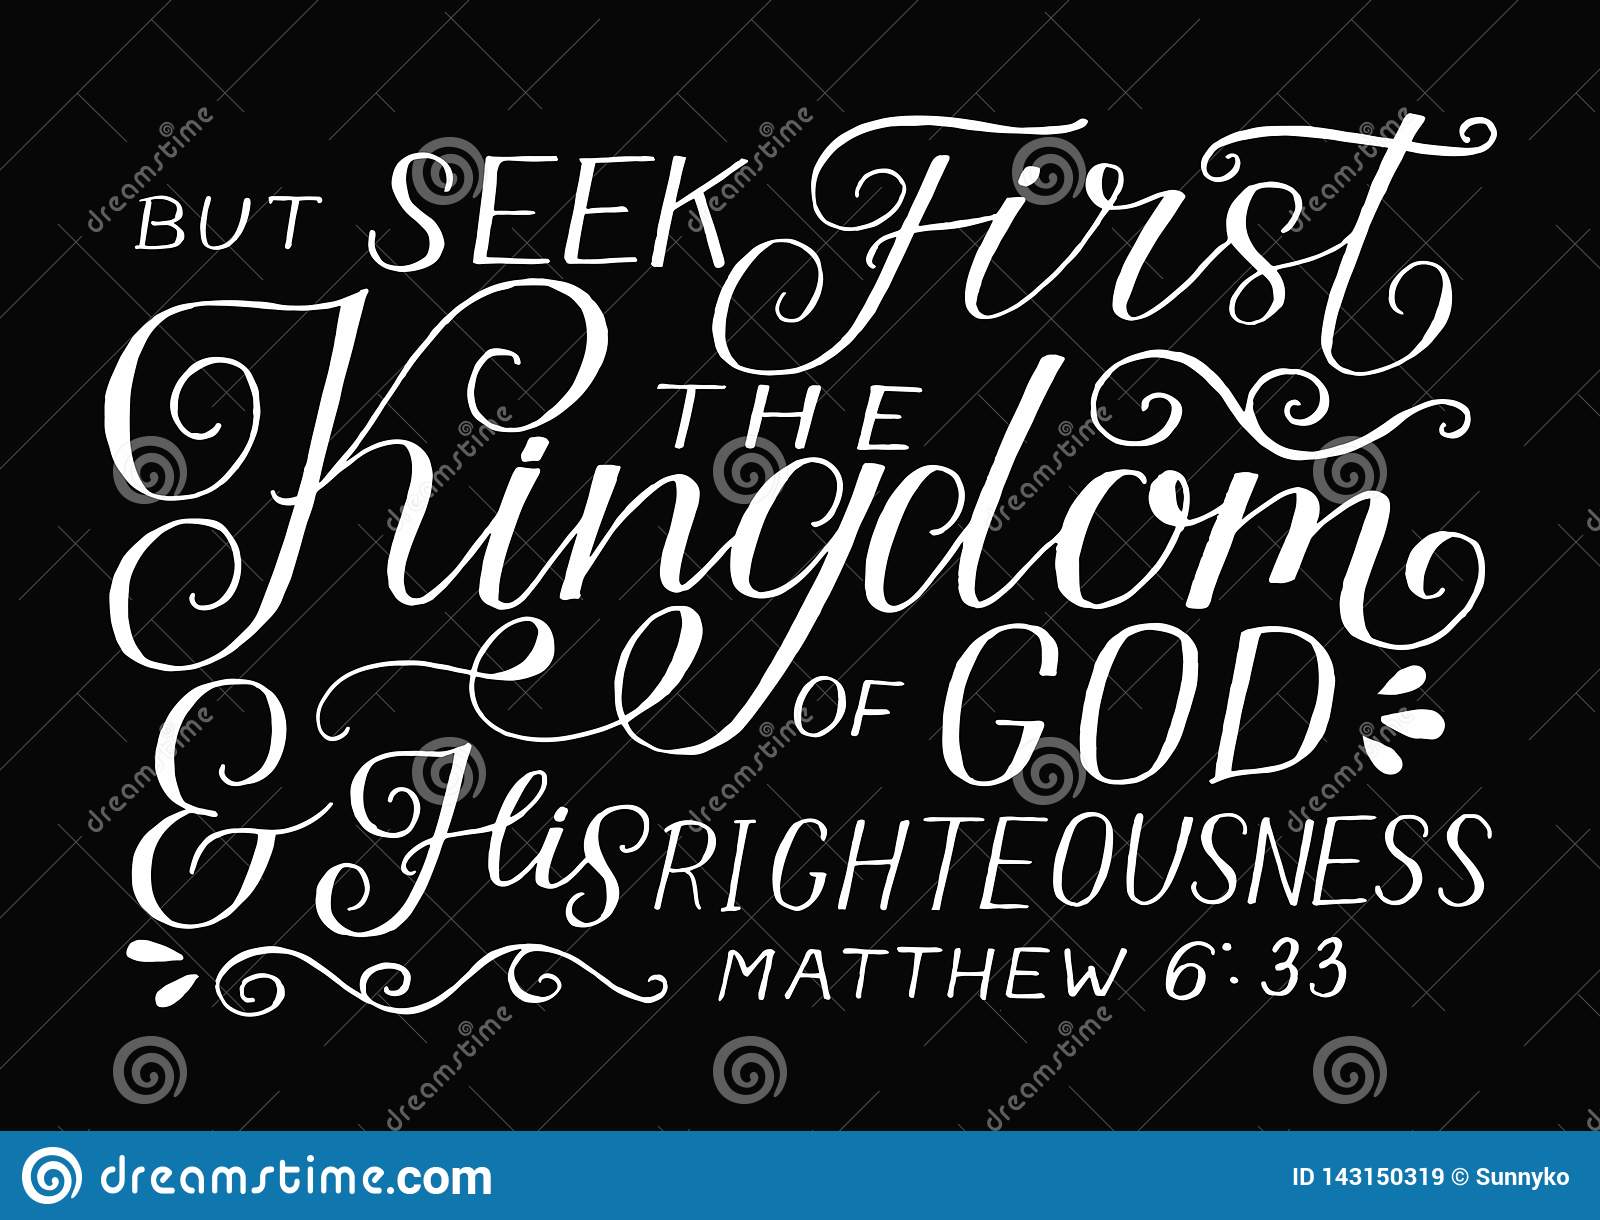 BUT SEEK First
THE
Kingdom
OF GOD
& His RIGHTEOUSNESS
MATTHEW 6:33
dreamstime.com
ID 143150319 © Sunnyko